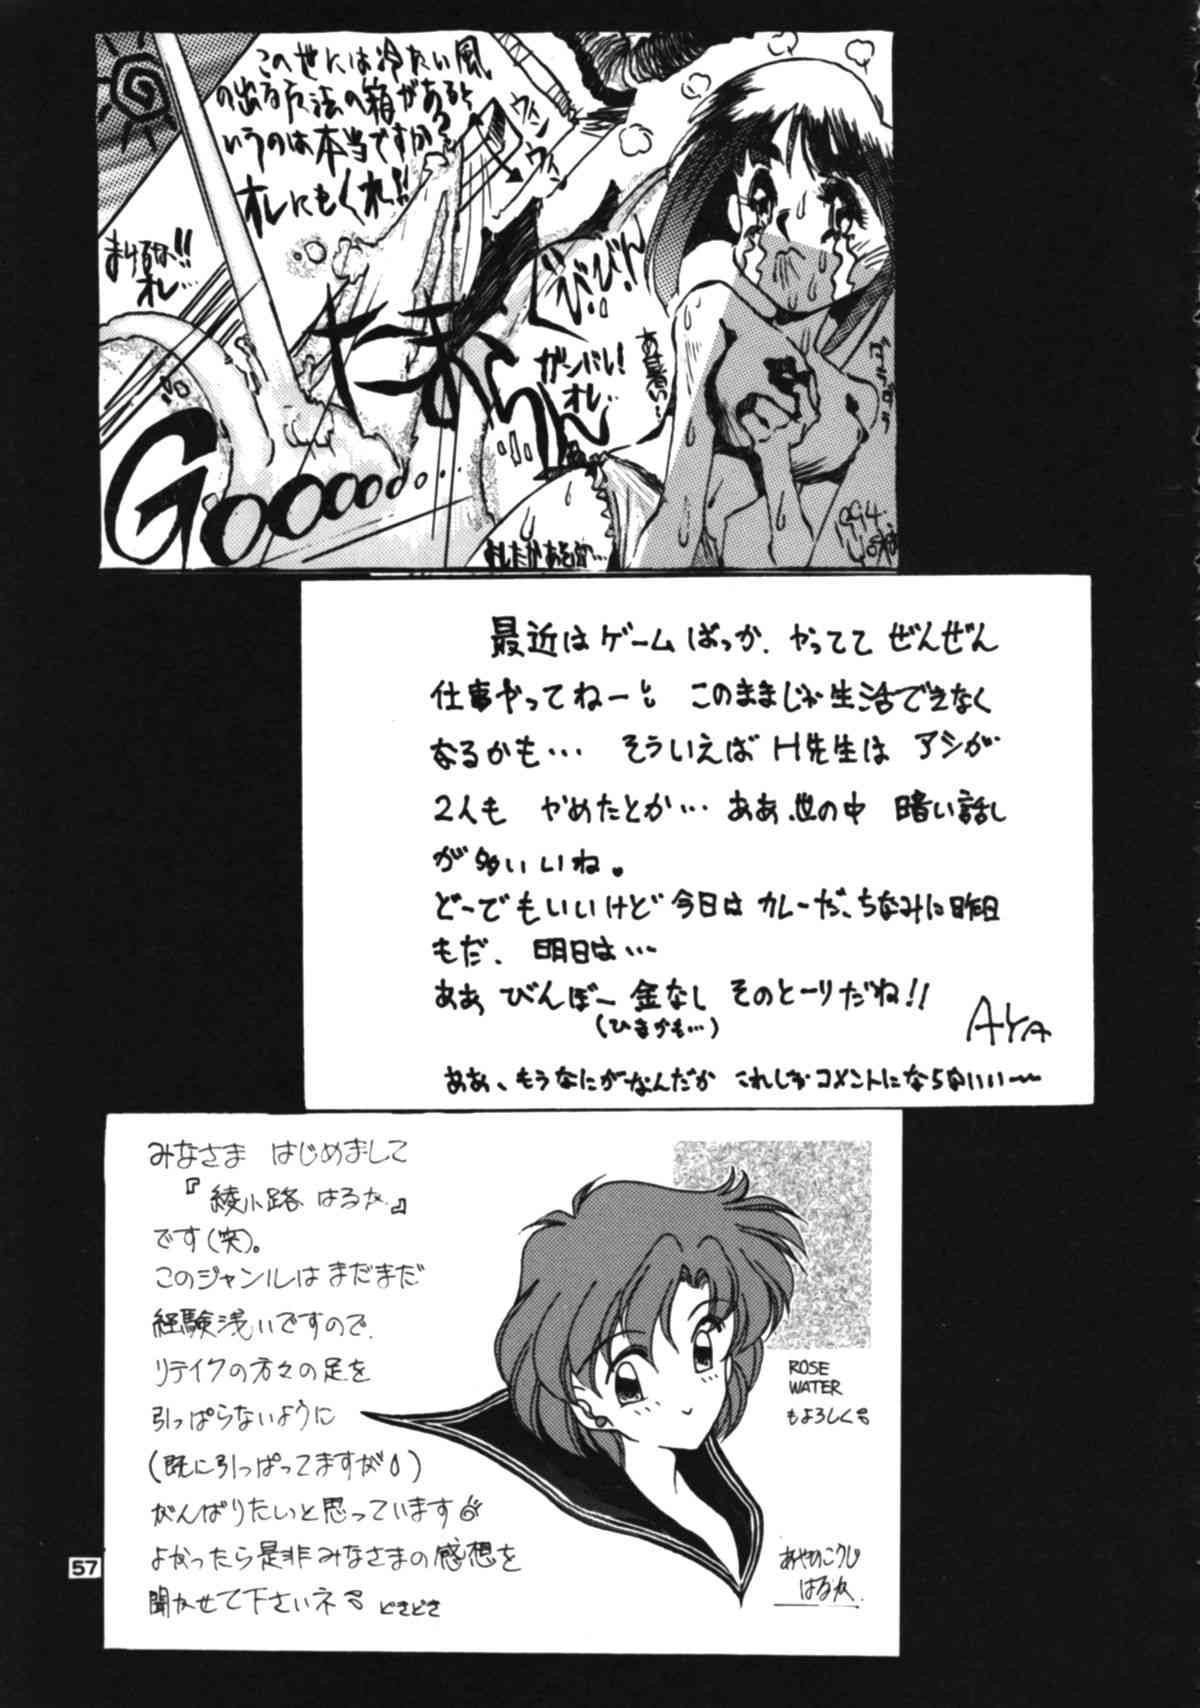 この世には冷たい風
の出る方法の箱があると
いうのは本当ですか?
オレにもくれ!!
まけるな!!
オレ…
ウィン
ウィン
びん
びびん
ガンバレ!
オレ…
あ、暑い…
ダラダラ
たまらん
GOOOOOO…
最近はゲームばっか、やってて ぜんぜん
仕事やってねーし このままじゃ生活できなく
なるかも… そういえば H先生は アシが
2人も やめたとか… ああ、世の中 暗い話し
が多いいね。
どーでもいいけど今日はカレーだ、ちなみに昨日
もだ、明日は…
ああ びんぼー金なし そのとーりだね!!
(ひまかも…)
AYA
ああ、もうなにがなんだか これじゃコメントにならないい〜
みなさま はじめまして
『綾小路 はるか』
です(笑)。
このジャンルはまだまだ
経験浅いですので、
リテイクの方々の足を
引っぱらないように
(既に引っぱってますが)
がんばりたいと思っています
よかったら是非みなさまの感想を
聞かせて下さいネ どきどき
ROSE
WATER
もよろしく
あやのこうじ
はるか
57